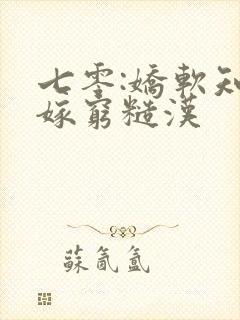 七零:嬌軟知
嫁窮糙漢
蘇氤氳